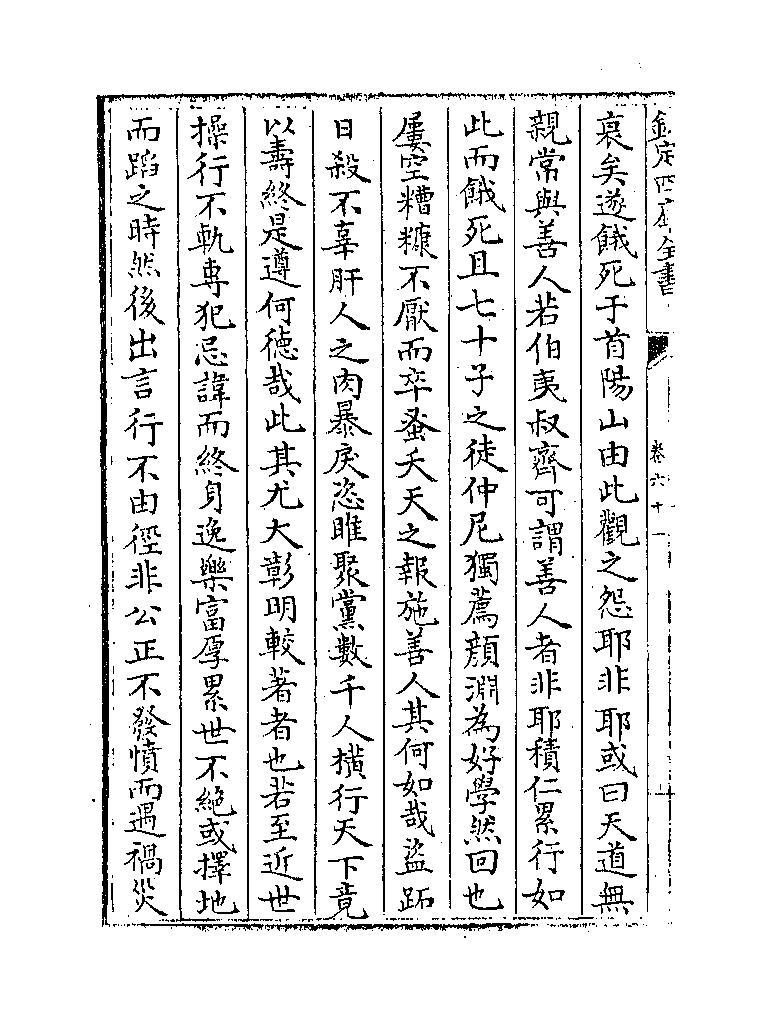 欽定四庫全書
卷六十一
哀矣遂餓死于首陽山由此觀之怨耶非耶或曰天道無
親常與善人若伯夷叔齊可謂善人者非耶積仁累行如
此而餓死且七十子之徒仲尼獨薦顔淵為好學然回也
屢空糟糠不厭而卒蚤夭天之報施善人其何如哉盜跖
日殺不辜肝人之肉暴戾恣睢聚黨數千人橫行天下竟
以壽終是遵何德哉此其尤大彰明較著者也若至近世
操行不軌專犯忌諱而終身逸樂富厚累世不絶或擇地
而蹈之時然後出言行不由徑非公正不發憤而遇禍災